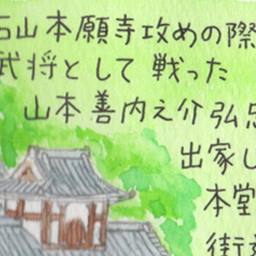 石山本願寺攻めの際
武将として戦った
山本善内之介弘忠
出家し
本堂
街道